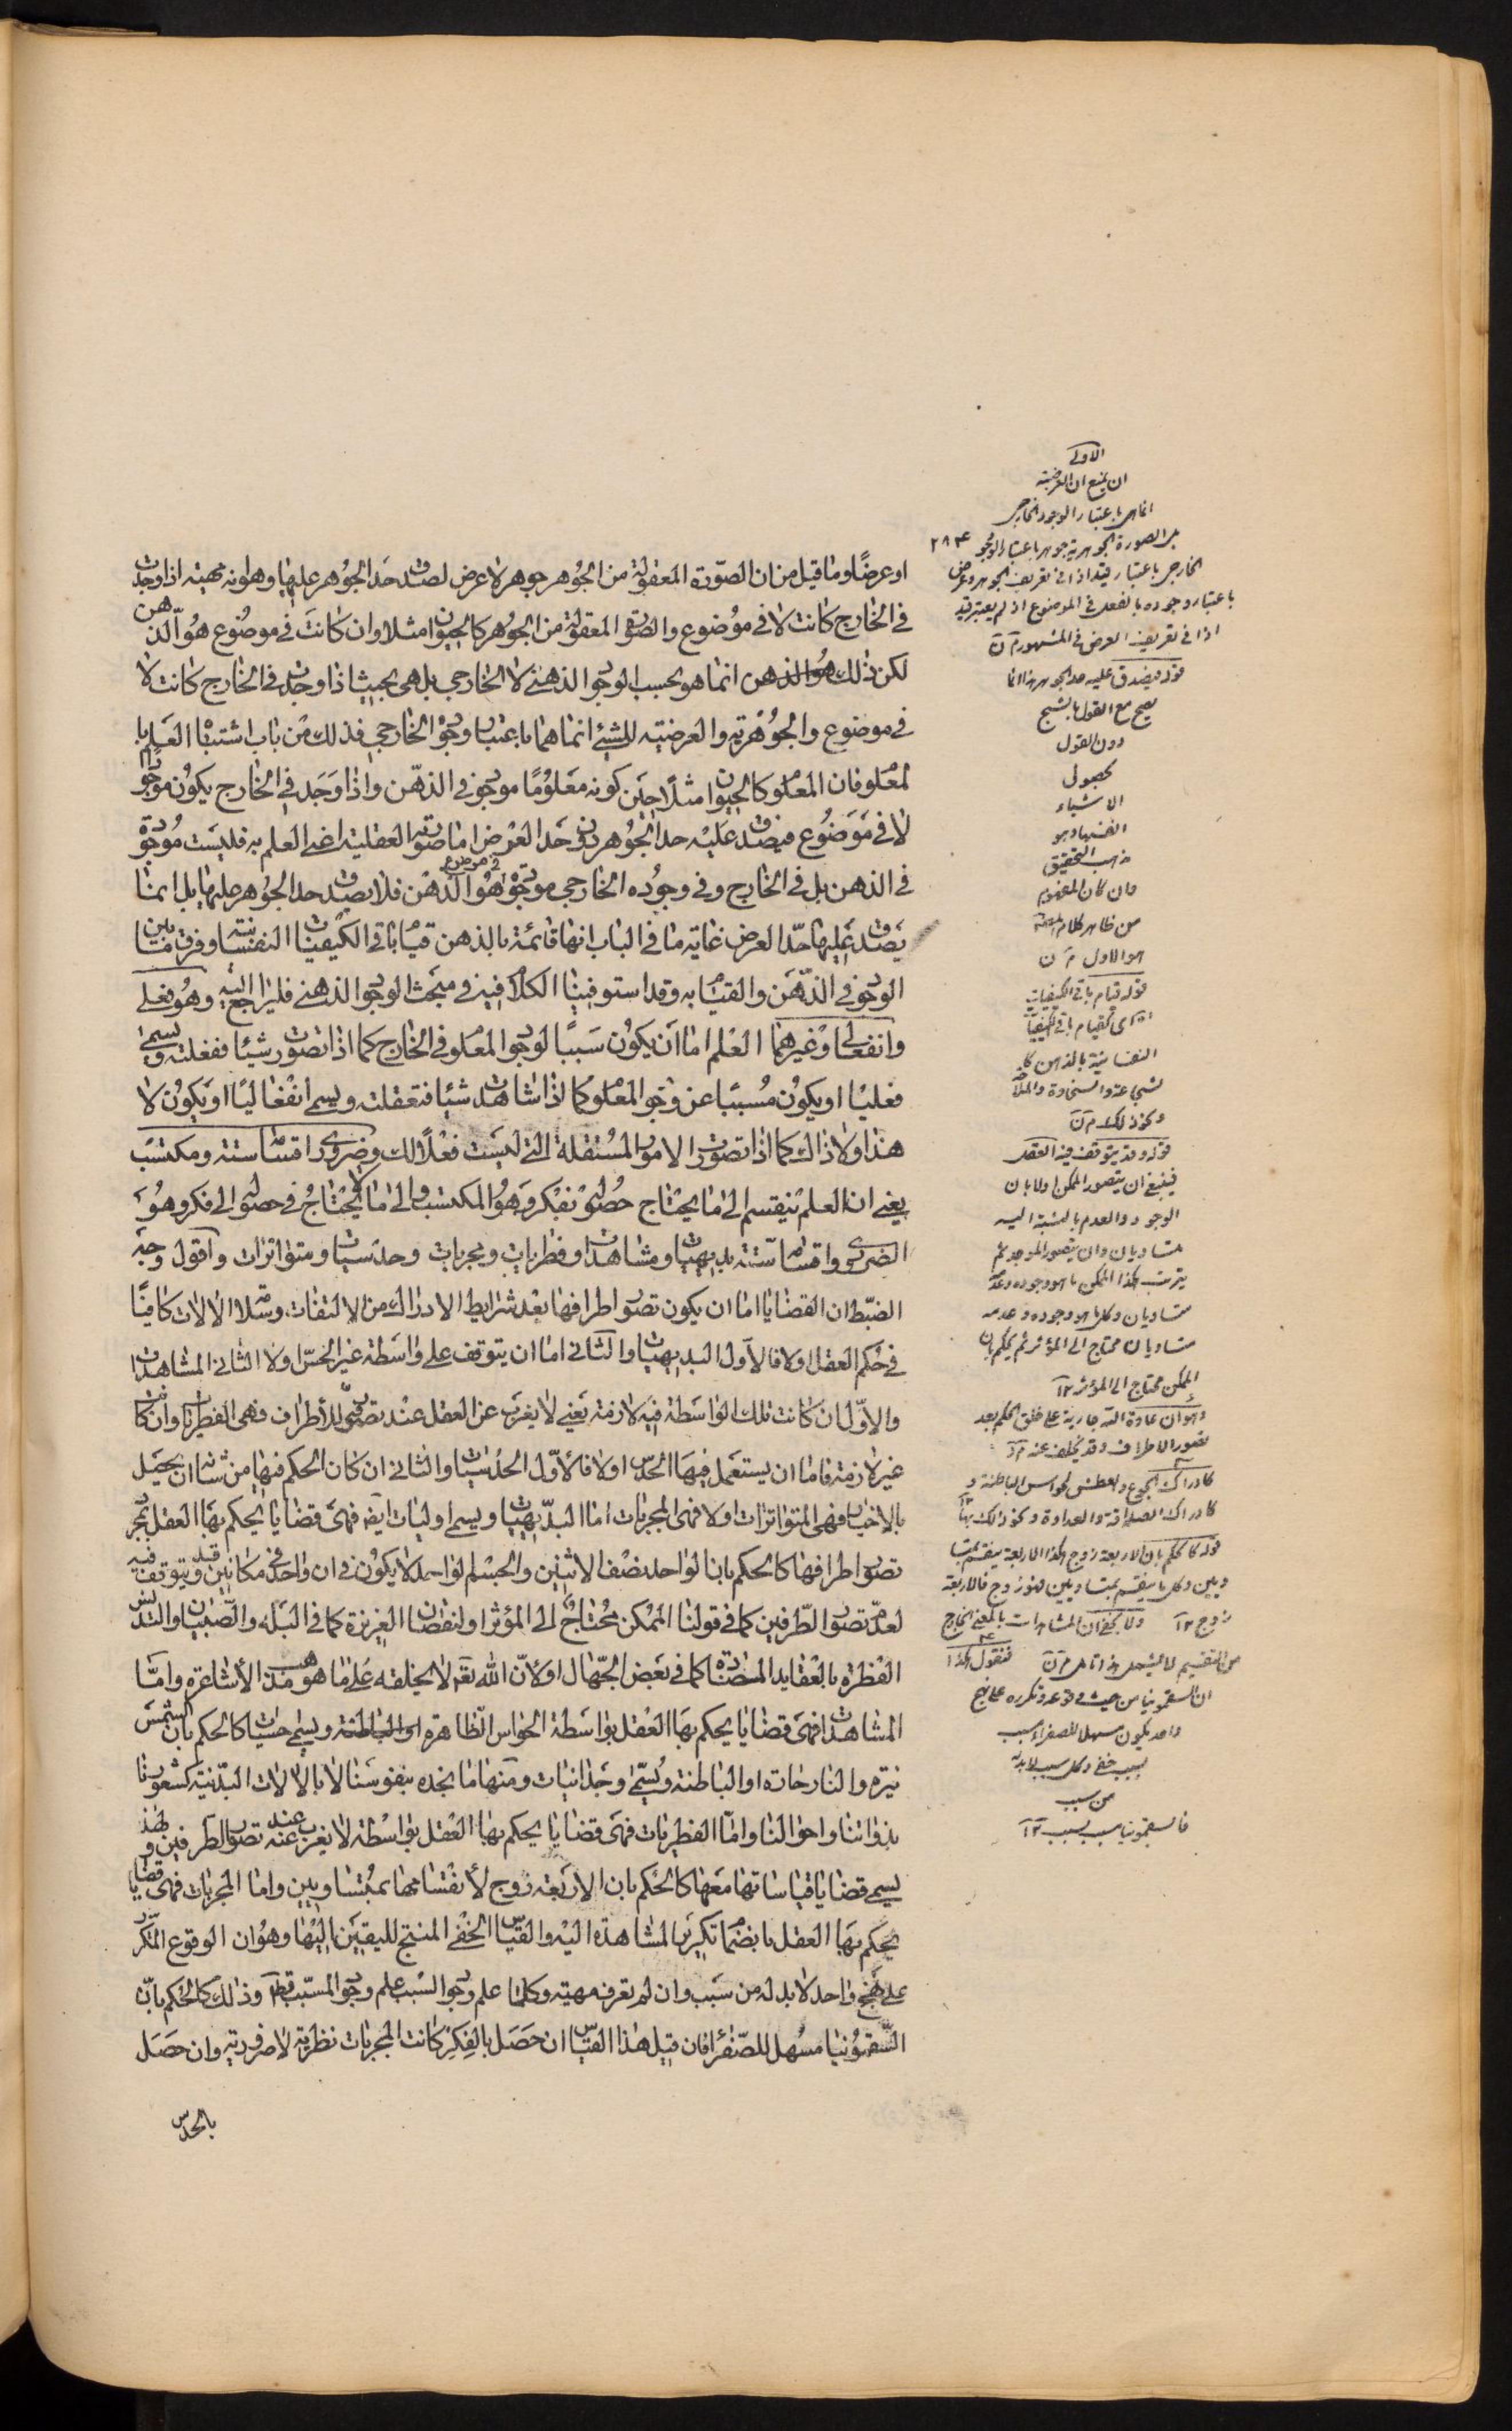 او عرضا وما قيل من ان الصورة المعقولة من الجوهر جوهر لا عرض لصدق حد الجوهر عليها وهو انه مهية اذا وجدت
في الخارج كانت لا في موضوع والصورة المعقولة من الجوهر كالحيوان مثلا وان كانت في موضوع هو الذهن
لكن ذلك انما هو بحسب الوجود الذهني لا الخارجي بل هي بحيث اذا وجدت في الخارج كانت لا
في موضوع والجوهرية والعرضية للشيء انما هما باعتبار وجوده الخارجي فذلك من باب اشتباه العلم با
لمعلوم فان المعلوم كالحيوان مثلا حين كونه معلوما موجود في الذهن واذا وجد في الخارج يكون موجودا
لا في موضوع فيصدق عليه حد الجوهر دون حد العرض اما صورته العقلية اعني العلم به فليست موجودة
في الذهن بل في الخارج وفي وجوده الخارجي موجود في موضوع هو الذهن فلا يصدق حد الجوهر عليها بل انما
يصدق عليها حد العرض غاية ما في الباب انها قائمة بالذهن قيام باقي الكيفيات النفسانية وفرق ما بين
الوجود في الذهن والقيام به وقد استوفينا الكلام فيه في مبحث الوجود الذهني فليراجع اليه وهو فعلي
وانفعالي او غيرهما العلم اما ان يكون سببا لوجود المعلوم في الخارج كما اذا تصورت شيئا ففعلته ويسمى
فعليا او يكون مسببا عن وجود المعلوم كما اذا شاهدت شيئا فتعقلته ويسمى انفعاليا او يكون لا
هذا ولا ذاك كما اذا تصورت الامور المستقبلة التي ليست فعلا لك وضروري اقسامه ستة ومكتسب
يعني ان العلم ينقسم الى ما يحتاج حصوله بفكر وهو المكتسب والى ما لا يحتاج في حصوله الى فكر وهو
الضروري واقسامه ستة بديهيات ومشاهدات وفطريات ومجربات وحدسيات ومتواترات واقول وجه
الضبط ان القضايا اما ان يكون تصور اطرافها بعد شرايط الادراك من الالتفات وسلامة الالات كافيا
في حكم العقل اولا فالاول البديهيات والثاني اما ان يتوقف على واسطة غير الحس اولا الثاني المشاهدات
والاول ان كانت تلك الواسطة فيه لازمة يعني لا يغرب عن العقل عند تصور الاطراف فهي الفطريات وان كانت
غير لازمة فاما ان يستعمل فيها الحدس اولا فالاول الحدسيات والثاني ان كان الحكم فيها من شانه ان يحصل
بالاخبار فهي المتواترات اولا فهي المجربات اما البديهيات ويسمى اوليات ايضا فهي قضايا يحكم بها العقل بمجرد
تصور اطرافها كالحكم بان الواحد نصف الاثنين والجسم الواحد لا يكون في ان واحد في مكانين وقد يتوقف فيه
لعدم تصور الطرفين كما في قولنا الممكن محتاج الى المؤثر او لنقصان الغريزة كما في البله والصبيان او لتدنيس
الفطرة بالعقايد المضادة كما في بعض الجهال او لان الله تعم لا يخلقه على ما هو مذهب الاشاعرة واما
المشاهدات فهي قضايا يحكم بها العقل بواسطة الحواس الظاهرة ويسمى حسيات كالحكم بان الشمس
نيرة والنار حارة او الباطنة ويسمى وجدانيات ومنها ما نجده بنفوسنا لا بالالات البدنية كشعورنا
بذواتنا واحوالنا واما الفطريات فهي قضايا يحكم بها العقل بواسطة لا يغرب عنه عند تصور الطرفين ولهذا
يسمى قضايا قياساتها معها كالحكم بان الاربعة زوج لانقسامها بمتساويين واما المجربات فهي قضايا
يحكم بها العقل بانضمام تكرر المشاهدة اليه والقياس الخفي المنتج لليقين اليها وهو ان الوقوع المتكرر
على نهج واحد لا بد له من سبب وان لم تعرف مهيته وكلما علم وجود السبب علم وجود المسبب قطعا وذلك كالحكم بان
السقمونيا مسهل للصفراء فان قيل هذا القياس ان حصل بالفكر كانت المجربات نظرية لا ضرورية وان حصل
بالحدس
الاولى
ان يمنع ان العرضية
انما هي باعتبار الوجود الخارجي
بل الصورة الجوهرية جوهر باعتبار الوجود
٢٨٤
الخارجي باعتبار قيد اذا في تعريف الجوهر وعرض
باعتبار وجوده بالفعل في الموضوع اذ لم يعتبر قيد
اذا في تعريف العرض في المشهور
قوله فيصدق عليه حد الجوهر هذا انما
يصح مع القول بالشبح
دون القول
بحصول
الاشياء
انفسها وهو
مذهب التحقيق
فان كان المفهوم
من ظاهر كلام
هو الاول
قوله قيام باقي الكيفيات
اي كقيام باقي الكيفيات
النفسانية بالذهن كا
لشجاعة والسخاوة
قوله وقد يتوقف فيه العقل
فينبغي ان يتصور الممكن اولا بان
الوجود والعدم بالنسبة اليه
متساويان وان يتصور الموجد ثم
يترتب هكذا الممكن ما هو وجوده وعدمه
متساويان وكل ما هو وجوده وعدمه
متساويان محتاج الى المؤثر ثم يحكم بان
الممكن محتاج الى المؤثر
وهو ان عادة الله جارية على خلق الحكم بعد
تصور الاطراف وقد يتخلف عنه
كادراك الجوع والعطش
كادراك الصداقة والعداوة
قوله كالحكم بان الاربعة زوج هكذا الاربعة ينقسم بمتسا
ويين وكل ما ينقسم بمتساويين فهو زوج فالاربعة
زوج
ولا يخفى ان المشاهدات بالمعنى الخارج
من التقسيم لا يشمل هذا تامل
فنقول هكذا
ان السقمونيا من حيث وقوعه وتكرره على نهج
واحد يكون مسهلا للصفراء بسبب
سبب خفي وكل سبب لا بد له
من سبب
فالسقمونيا سبب بسبب